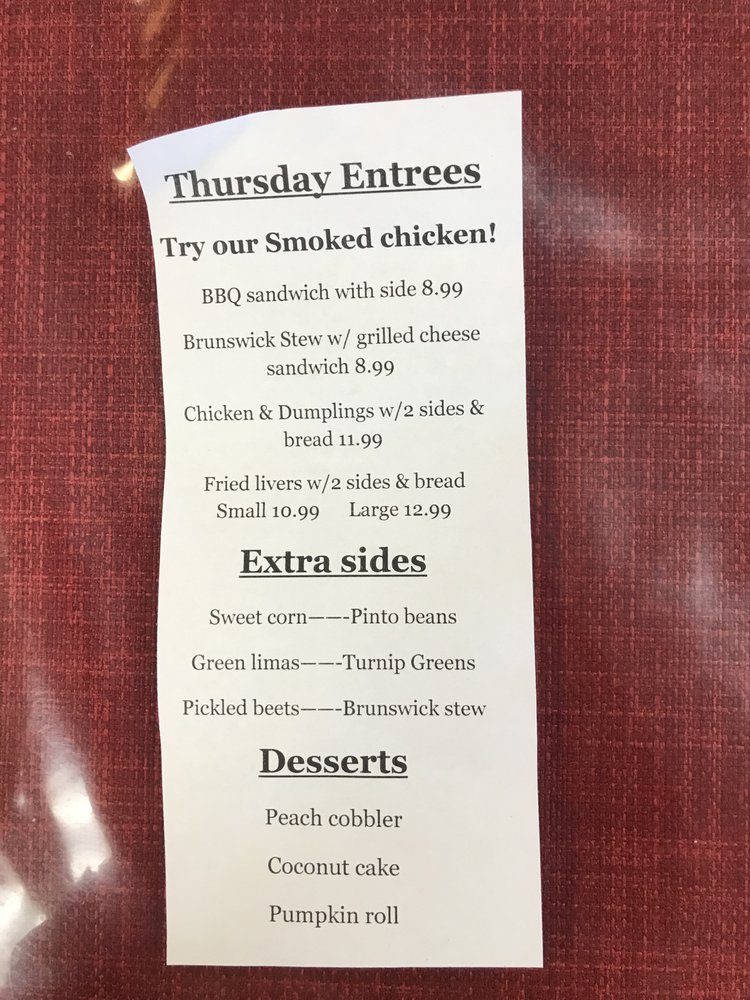 Thursday Entrees
Try our Smoked chicken!
BBQ sandwich with side 8.99
Brunswick Stew w/ grilled cheese
sandwich 8.99
Chicken & Dumplings w/2 sides &
bread 11.99
Fried livers w/2 sides & bread
Small 10.99 Large 12.99
Extra sides
Sweet corn——-Pinto beans
Green limas——-Turnip Greens
Pickled beets——-Brunswick stew
Desserts
Peach cobbler
Coconut cake
Pumpkin roll